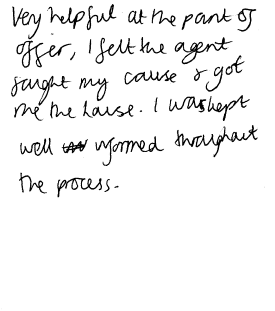 Very helpful at the point of
offer, I felt the agent
fought my cause & got
me the house. I was kept
well informed throughout
the process.